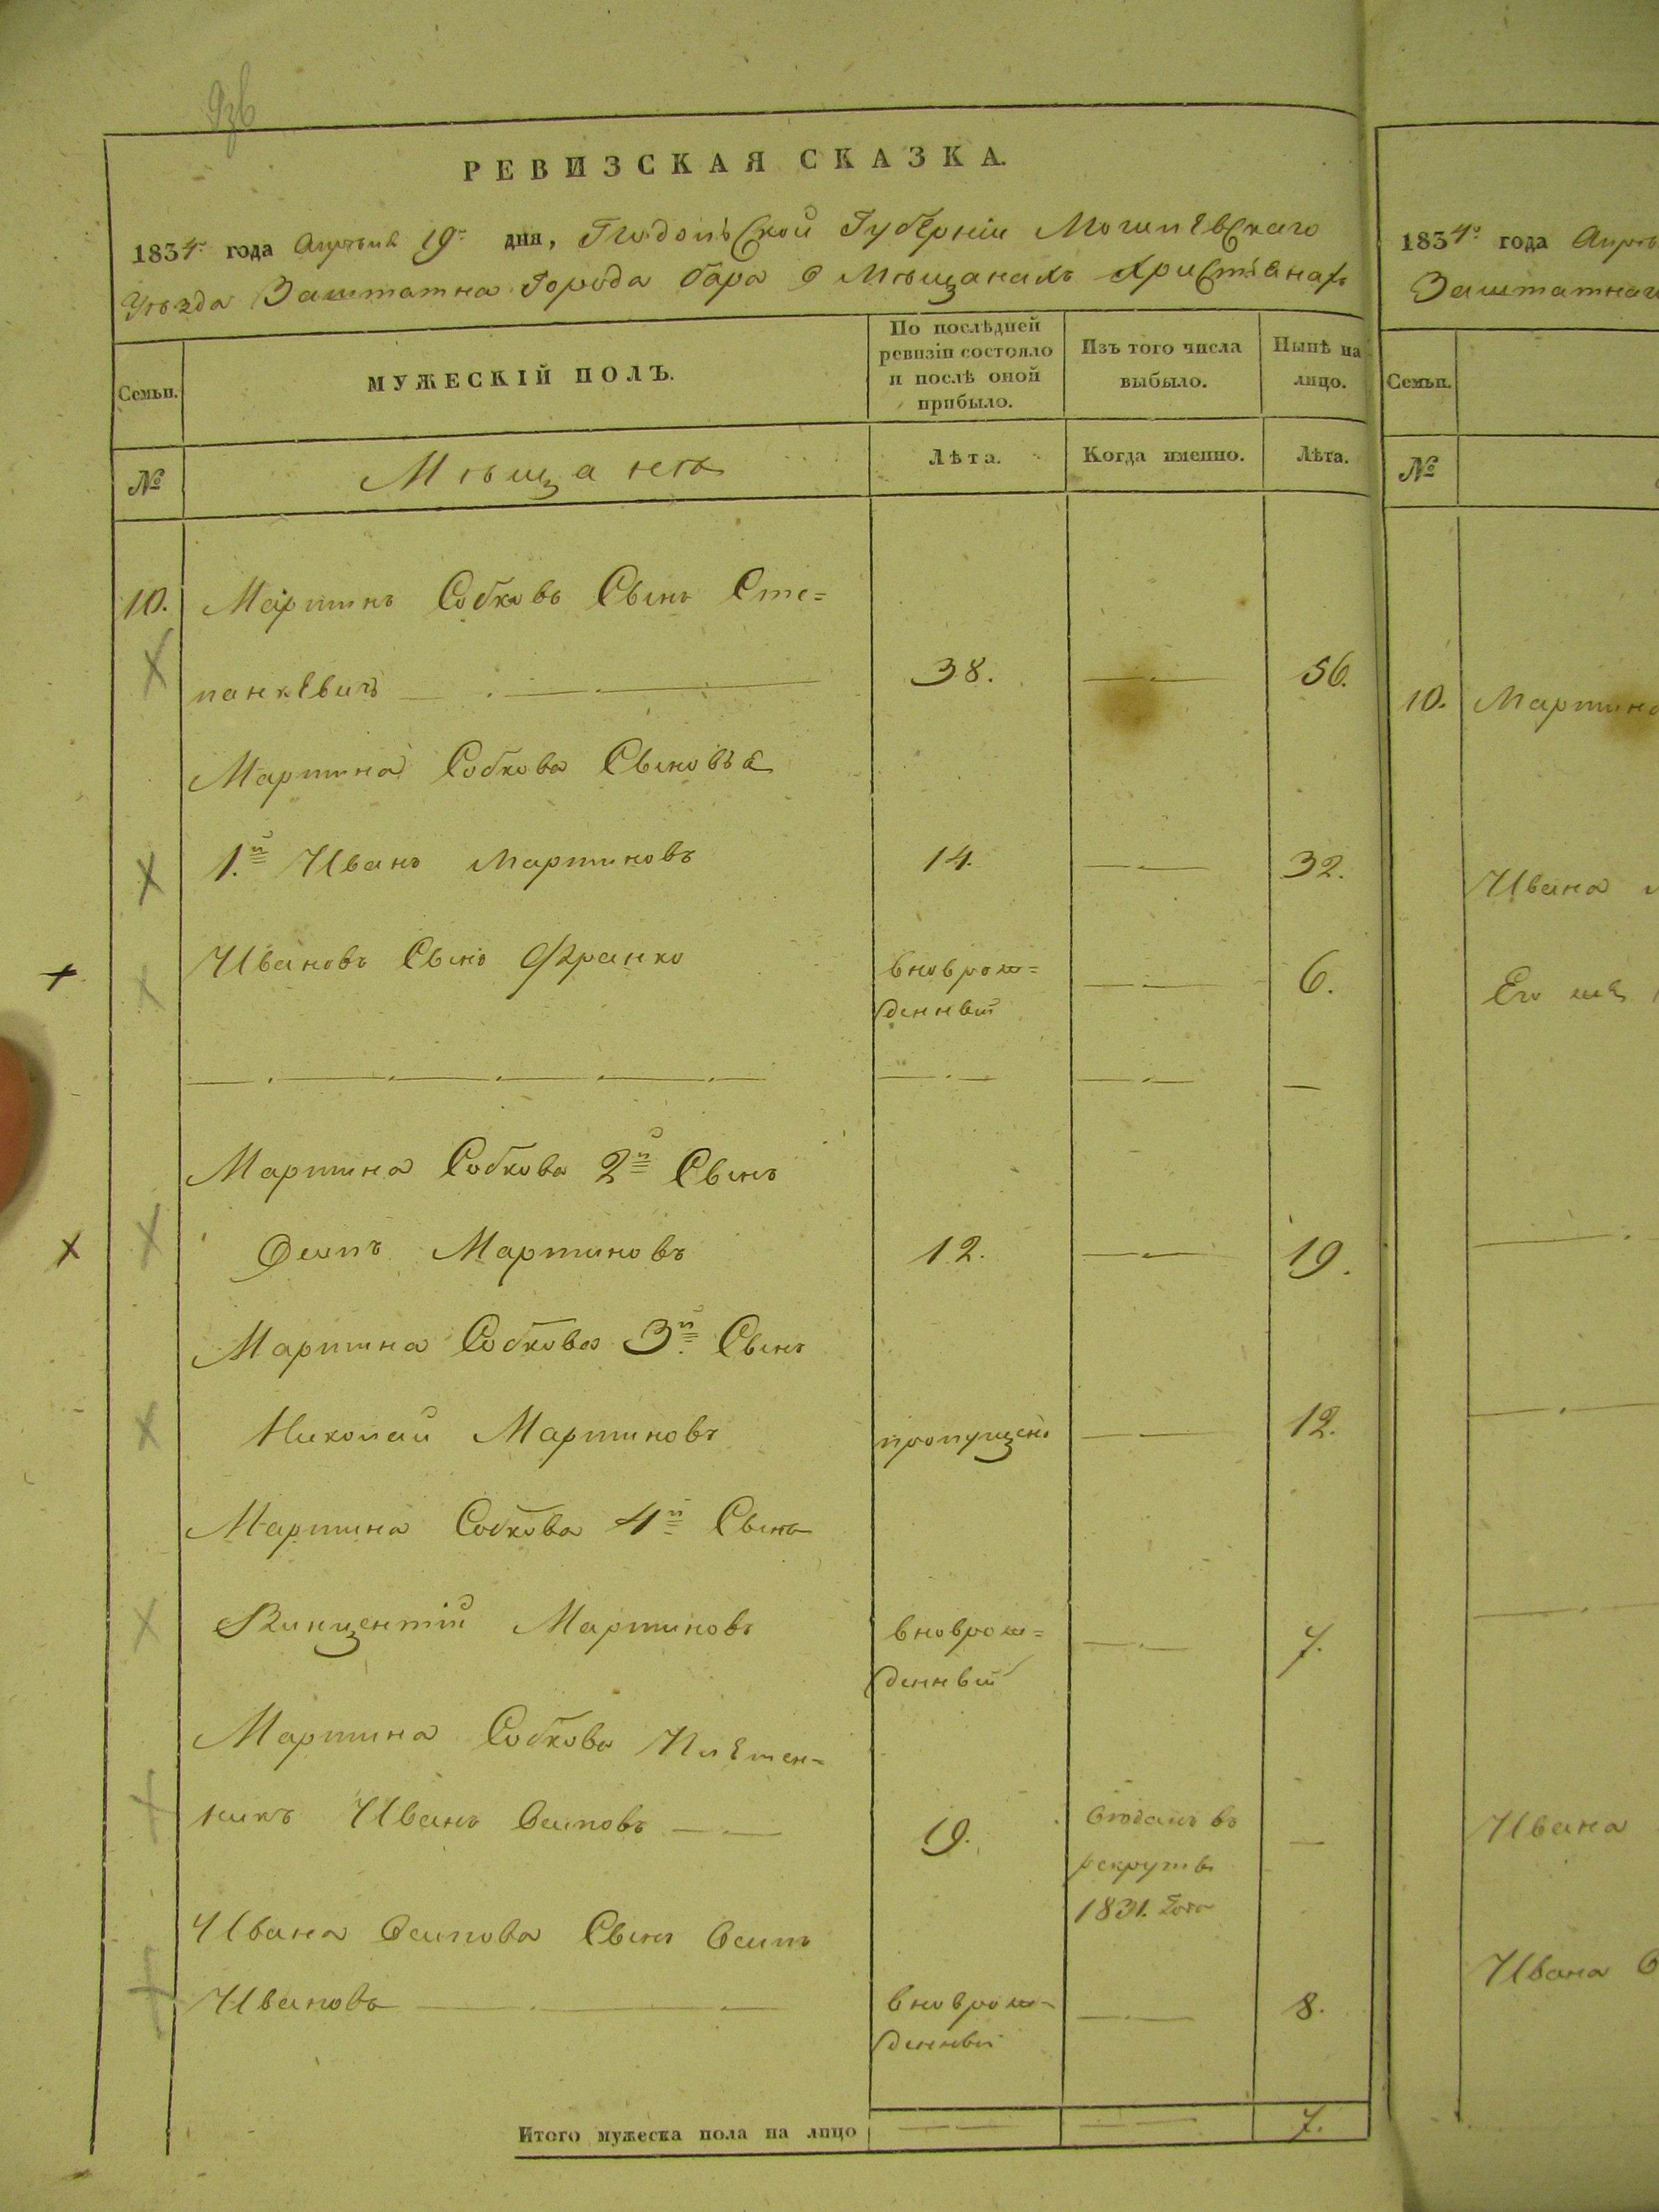 РЕВИЗСКАЯ СКАЗКА.
1834го года Апрѣля 19го дня, Подольской Губерніи Могилевскаго
Уѣзда Заштатна Города Бара о Мѣщанахъ Християнахъ
Семьи.
МУЖЕСКІЙ ПОЛЪ.
По послѣдней ревизіи состояло и послѣ оной прибыло.
Изъ того числа выбыло.
Нынѣ на лицо.
№ Мѣщане Лѣта. Когда именно. Лѣта.
10. Мартинъ Собковъ Сынъ Сте=
панкевичъ 38. 56.
Мартина Собкова Сыновья
1.й Иванъ Мартиновъ 14. 32.
Ивановъ Сынъ Франко вноврож= 6.
денный
Мартина Собкова 2й Сынъ
Осипъ Мартиновъ 12. 19.
Мартина Собкова 3й Сынъ
Николай Мартиновъ пропущенъ 12.
Мартина Собкова 4й Сынъ
Винцентій Мартиновъ вноврож= 7.
денный
Мартина Собкова Племен=
никъ Иванъ Осиповъ 19. Отданъ въ
рекруты
1831. Года
Ивана Осипова Сынъ Осипъ
Ивановъ вноврож= 8.
денный
Итого мужеска пола на лицо 7.
1834го года
Заштатнаго
Семьи.
№
10. Мартина
Ивана
Его же
Ивана
Ивана